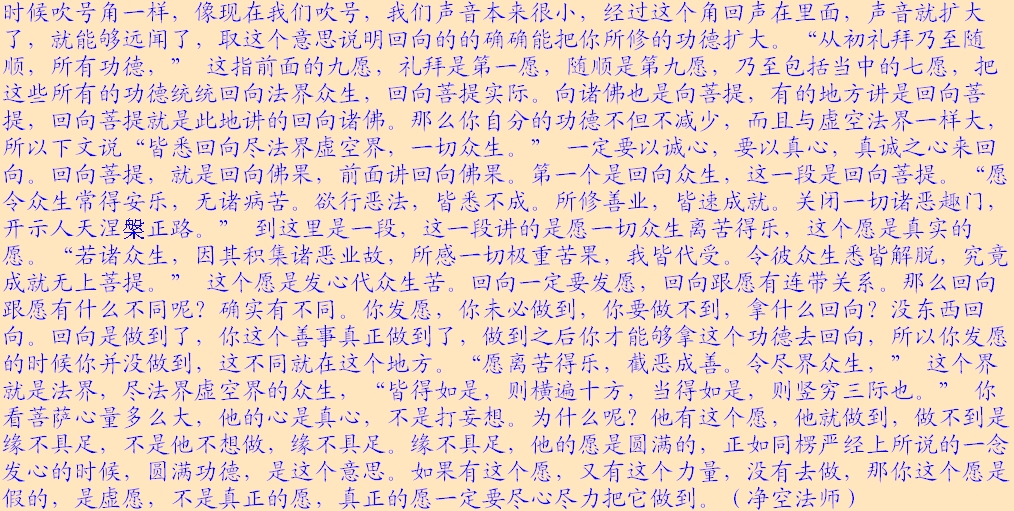 时候吹号角一样，像现在我们吹号，我们声音本来很小，经过这个角回声在里面，声音就扩大
了，就能够远闻了，取这个意思说明回向的的确确能把你所修的功德扩大。“从初礼拜乃至随
顺，所有功德，” 这指前面的九愿，礼拜是第一愿，随顺是第九愿，乃至包括当中的七愿，把
这些所有的功德统统回向法界众生，回向菩提实际。向诸佛也是向菩提，有的地方讲是回向菩
提，回向菩提就是此地讲的回向诸佛。那么你自分的功德不但不减少，而且与虚空法界一样大，
所以下文说“皆悉回向尽法界虚空界，一切众生。” 一定要以诚心，要以真心，真诚之心来回
向。回向菩提，就是回向佛果，前面讲回向佛果。第一个是回向众生，这一段是回向菩提。“愿
令众生常得安乐，无诸病苦。欲行恶法，皆悉不成。所修善业，皆速成就。关闭一切诸恶趣门，
开示人天涅槃正路。” 到这里是一段，这一段讲的是愿一切众生离苦得乐，这个愿是真实的
愿。“若诸众生，因其积集诸恶业故，所感一切极重苦果，我皆代受。令彼众生悉皆解脱，究竟
成就无上菩提。” 这个愿是发心代众生苦。回向一定要发愿，回向跟愿有连带关系。那么回向
跟愿有什么不同呢？确实有不同。你发愿，你未必做到，你要做不到，拿什么回向？没东西回
向。回向是做到了，你这个善事真正做到了，做到之后你才能够拿这个功德去回向，所以你发愿
的时候你并没做到，这不同就在这个地方。“愿离苦得乐，截恶成善。令尽界众生，” 这个界
就是法界，尽法界虚空界的众生，“皆得如是，则横遍十方，当得如是，则竖穷三际也。” 你
看菩萨心量多么大，他的心是真心，不是打妄想。为什么呢？他有这个愿，他就做到，做不到是
缘不具足，不是他不想做，缘不具足。缘不具足，他的愿是圆满的，正如同楞严经上所说的一念
发心的时候，圆满功德，是这个意思。如果有这个愿，又有这个力量，没有去做，那你这个愿是
假的，是虚愿，不是真正的愿，真正的愿一定要尽心尽力把它做到。（净空法师）